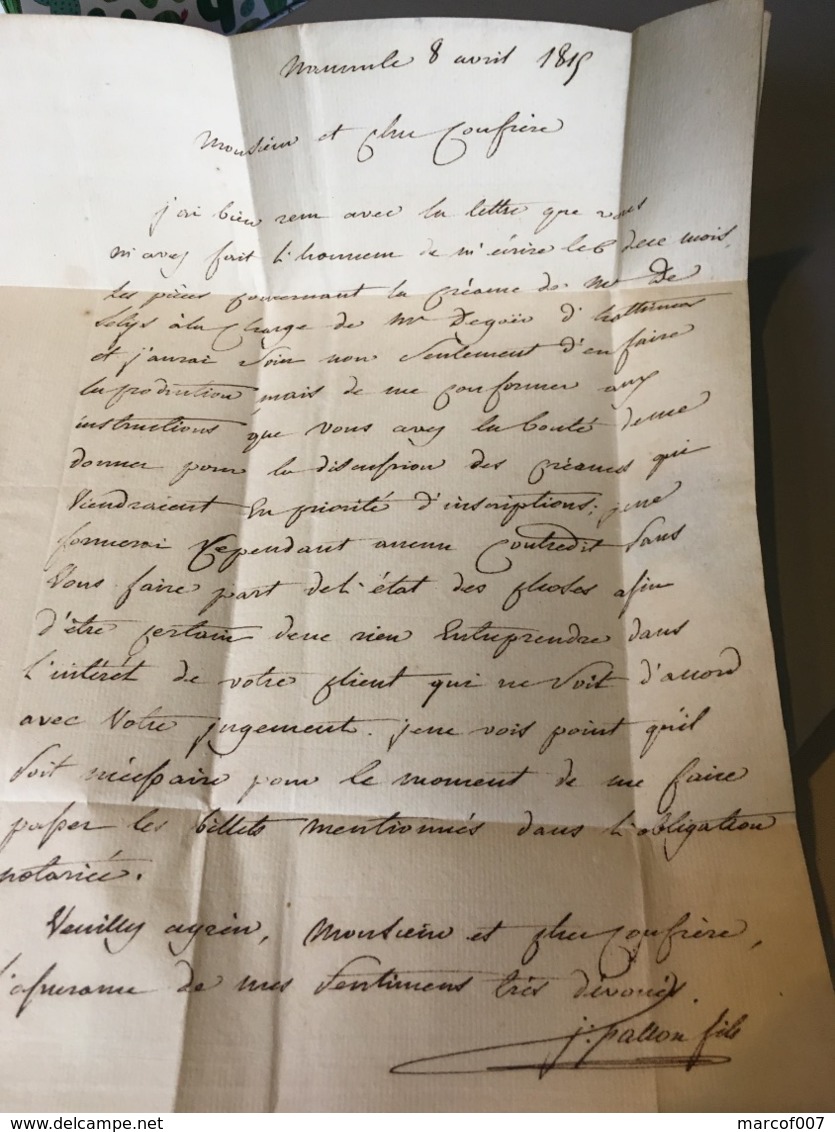 8 avril 1815
Monsieur et cher Confrère
j'ai bien recu avec la lettre que vous
m'avez fait l'honneur de m'écrire le 6 dece mois,
les pièces concernant la créance de Mr De
Selys à la Charge de Mr
et j'aurai Soin non Seulement d'en faire
la production, mais de me conformer aux
instructions que vous avez la bonté deme
donner pour la discussion des créances qui
viendraient En priorité d'inscriptions; jene
formerai Cependant aucun Contredit Sans
Vous faire part del'état des choses afin
d'être certain dene rien Entreprendre dans
l'intérêt de votre client qui ne Soit d'accord
avec Votre jugement. jene vois point qu'il
Soit nécessaire pour le moment de me faire
passer les billets mentionnés dans l'obligation
notariée.
Veuillez agréer, Monsieur et cher Confrère,
l'assurance de mes Sentimens très dévoués.
fils
marcof007